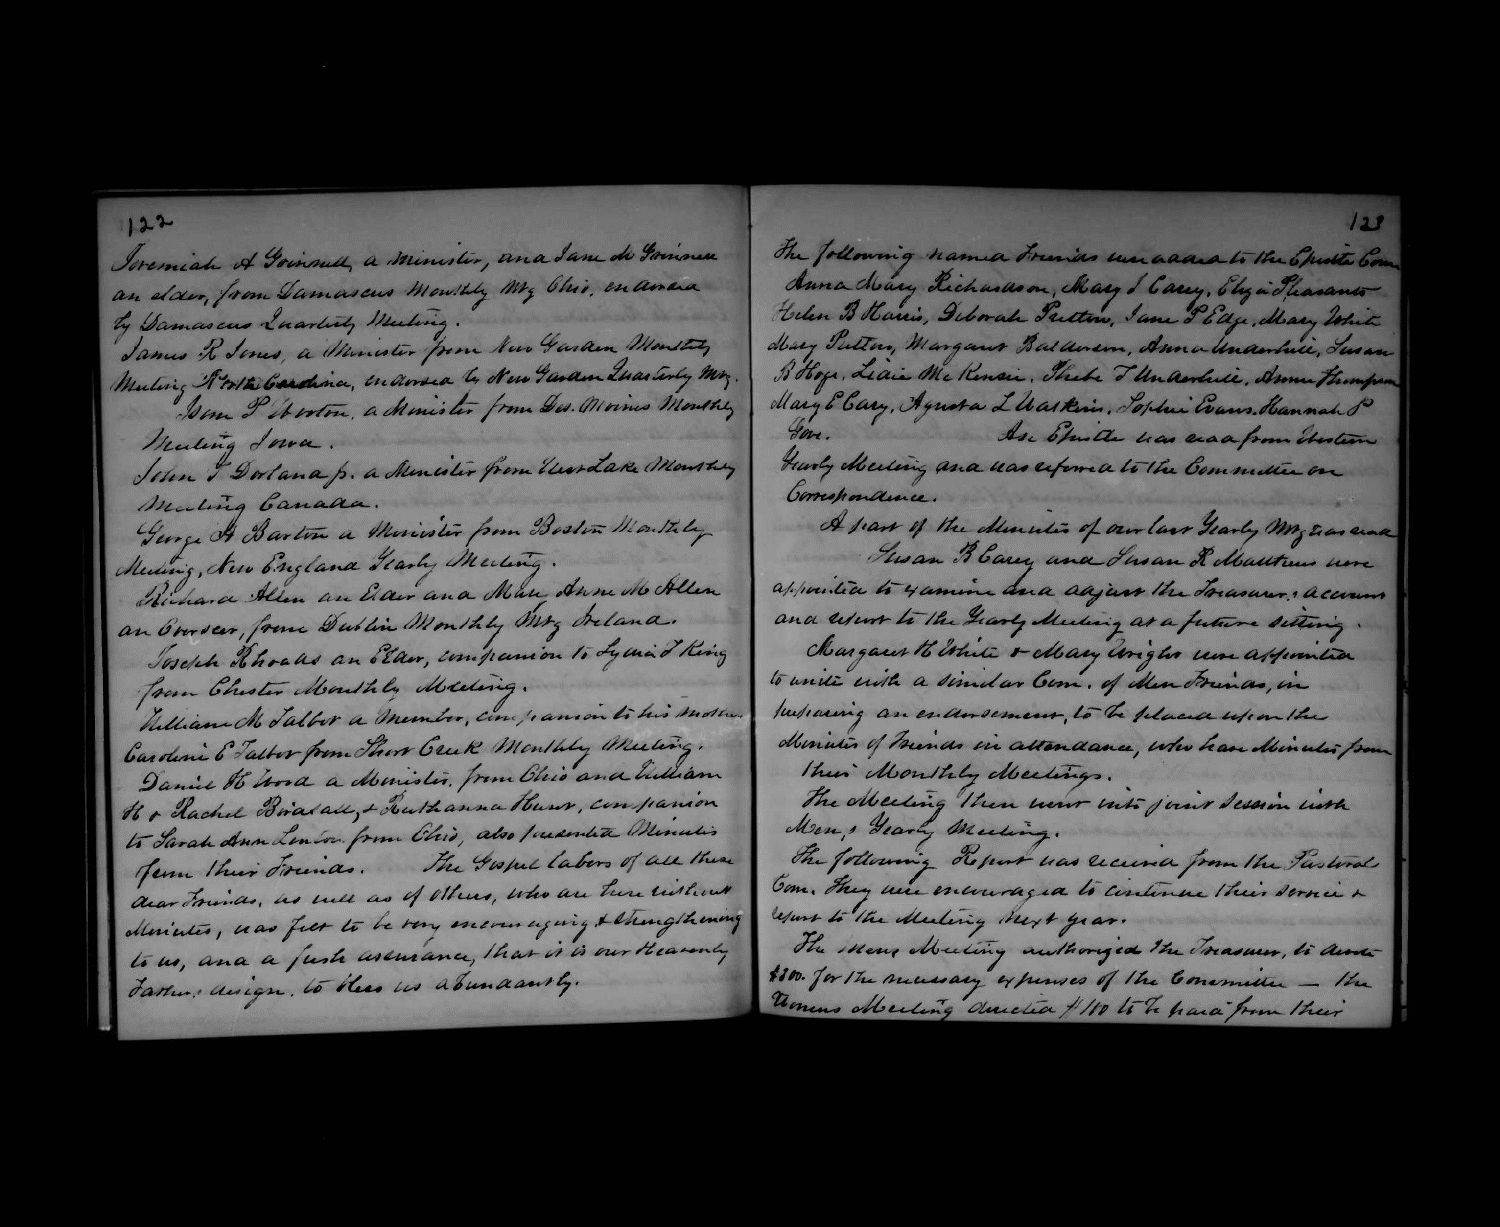 122
Jeremiah A Grinnell, a Minister, and Jane M Grinnell
an elder, from Damascus Monthly Mtg Ohio, endorsed
by Damascus Quarterly Meeting.
James R Jones, a Minister from New Garden Monthly
Meeting North Carolina, endorsed by New Garden Quarterly Mtg.
Isom P Wooton, a Minister from Des Moines Monthly
Meeting Iowa.
John T Dorland jr. a Minister from West Lake Monthly
Meeting Canada.
George A Barton a Minister from Boston Monthly
Meeting, New England Yearly Meeting.
Richard Allen an Elder and Mary Anne M Allen
an Overseer, from Dublin Monthly Mtg Ireland.
Joseph Rhoads an Elder, companion to Lydia T King
from Chester Monthly Meeting.
William M Talbot a Member, companion to his mother
Caroline E Talbot from Short Creek Monthly Meeting.
Daniel H Wood a Minister, from Ohio and William
H & Rachel Birdsall, & Ruthanna Hunt, companion
to Sarah Ann Linton from Ohio, also presented Minutes
from their Friends. The Gospel labors of all these
dear Friends, as well as of others, who are here without
Minutes, was felt to be very encouraging, & strengthening
to us, and a fresh assurance, that it is our Heavenly
Father,s design, to bless us abundantly.
123
The following named Friends were added to the Epistle Com
Anna Mary Richardson, Mary J Carey, Eliza Pleasants
Helen B Harris, Deborah Pretton, Jane P Edge, Mary White
Mary Patton, Margaret Balderson, Anna Underhill, Susan
B Hoge, Lidie McKensie, Phebe T Underhill, Annie Thompson
Mary E Cary, Agusta L Watkins, Sophie Evans, Hannah P
Gove. An Epistle was read from Western
Yearly Meeting and was referred to the Committee on
Correspondence.
A part of the Minutes of our last Yearly Mtg was read
Susan B Carey and Susan R Matthews were
appointed to examine and adjust the Treasurer,s account
and report to the Yearly Meeting at a future sitting.
Margaret H White & Mary Wright were appointed
to unite with a similar Com. of Men Friends, in
preparing an endorsement, to be placed upon the
Minutes of Friends in attendance, who have Minutes from
their Monthly Meetings.
The Meeting then went into joint session with
Men,s Yearly Meeting.
The following Report was received from the Pastoral
Com. They were encouraged to continue their service &
report to the Meeting next year.
The mens Meeting authorized the Treasurer, to devote
$300. for the necessary expenses of the Committee — the
Womens Meeting directed $100 to be paid from their